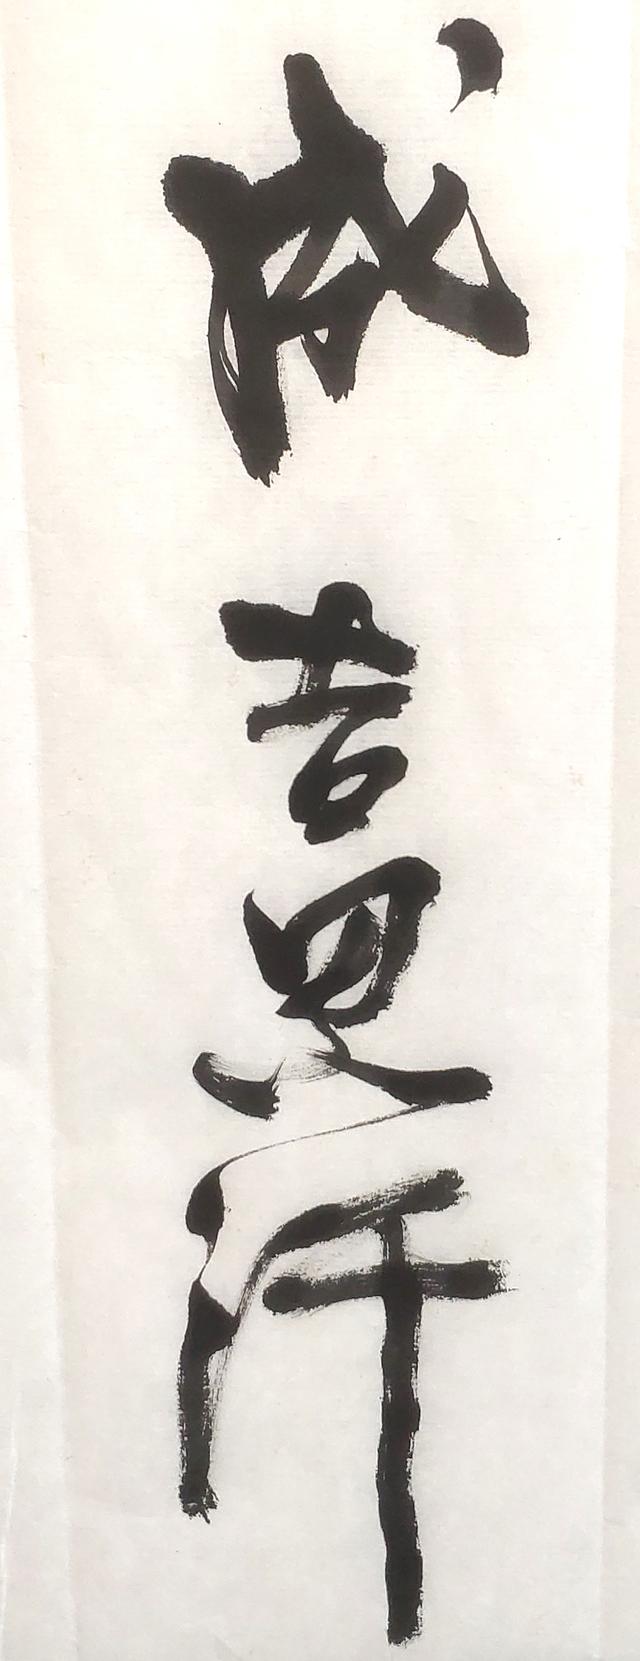 成吉思汗